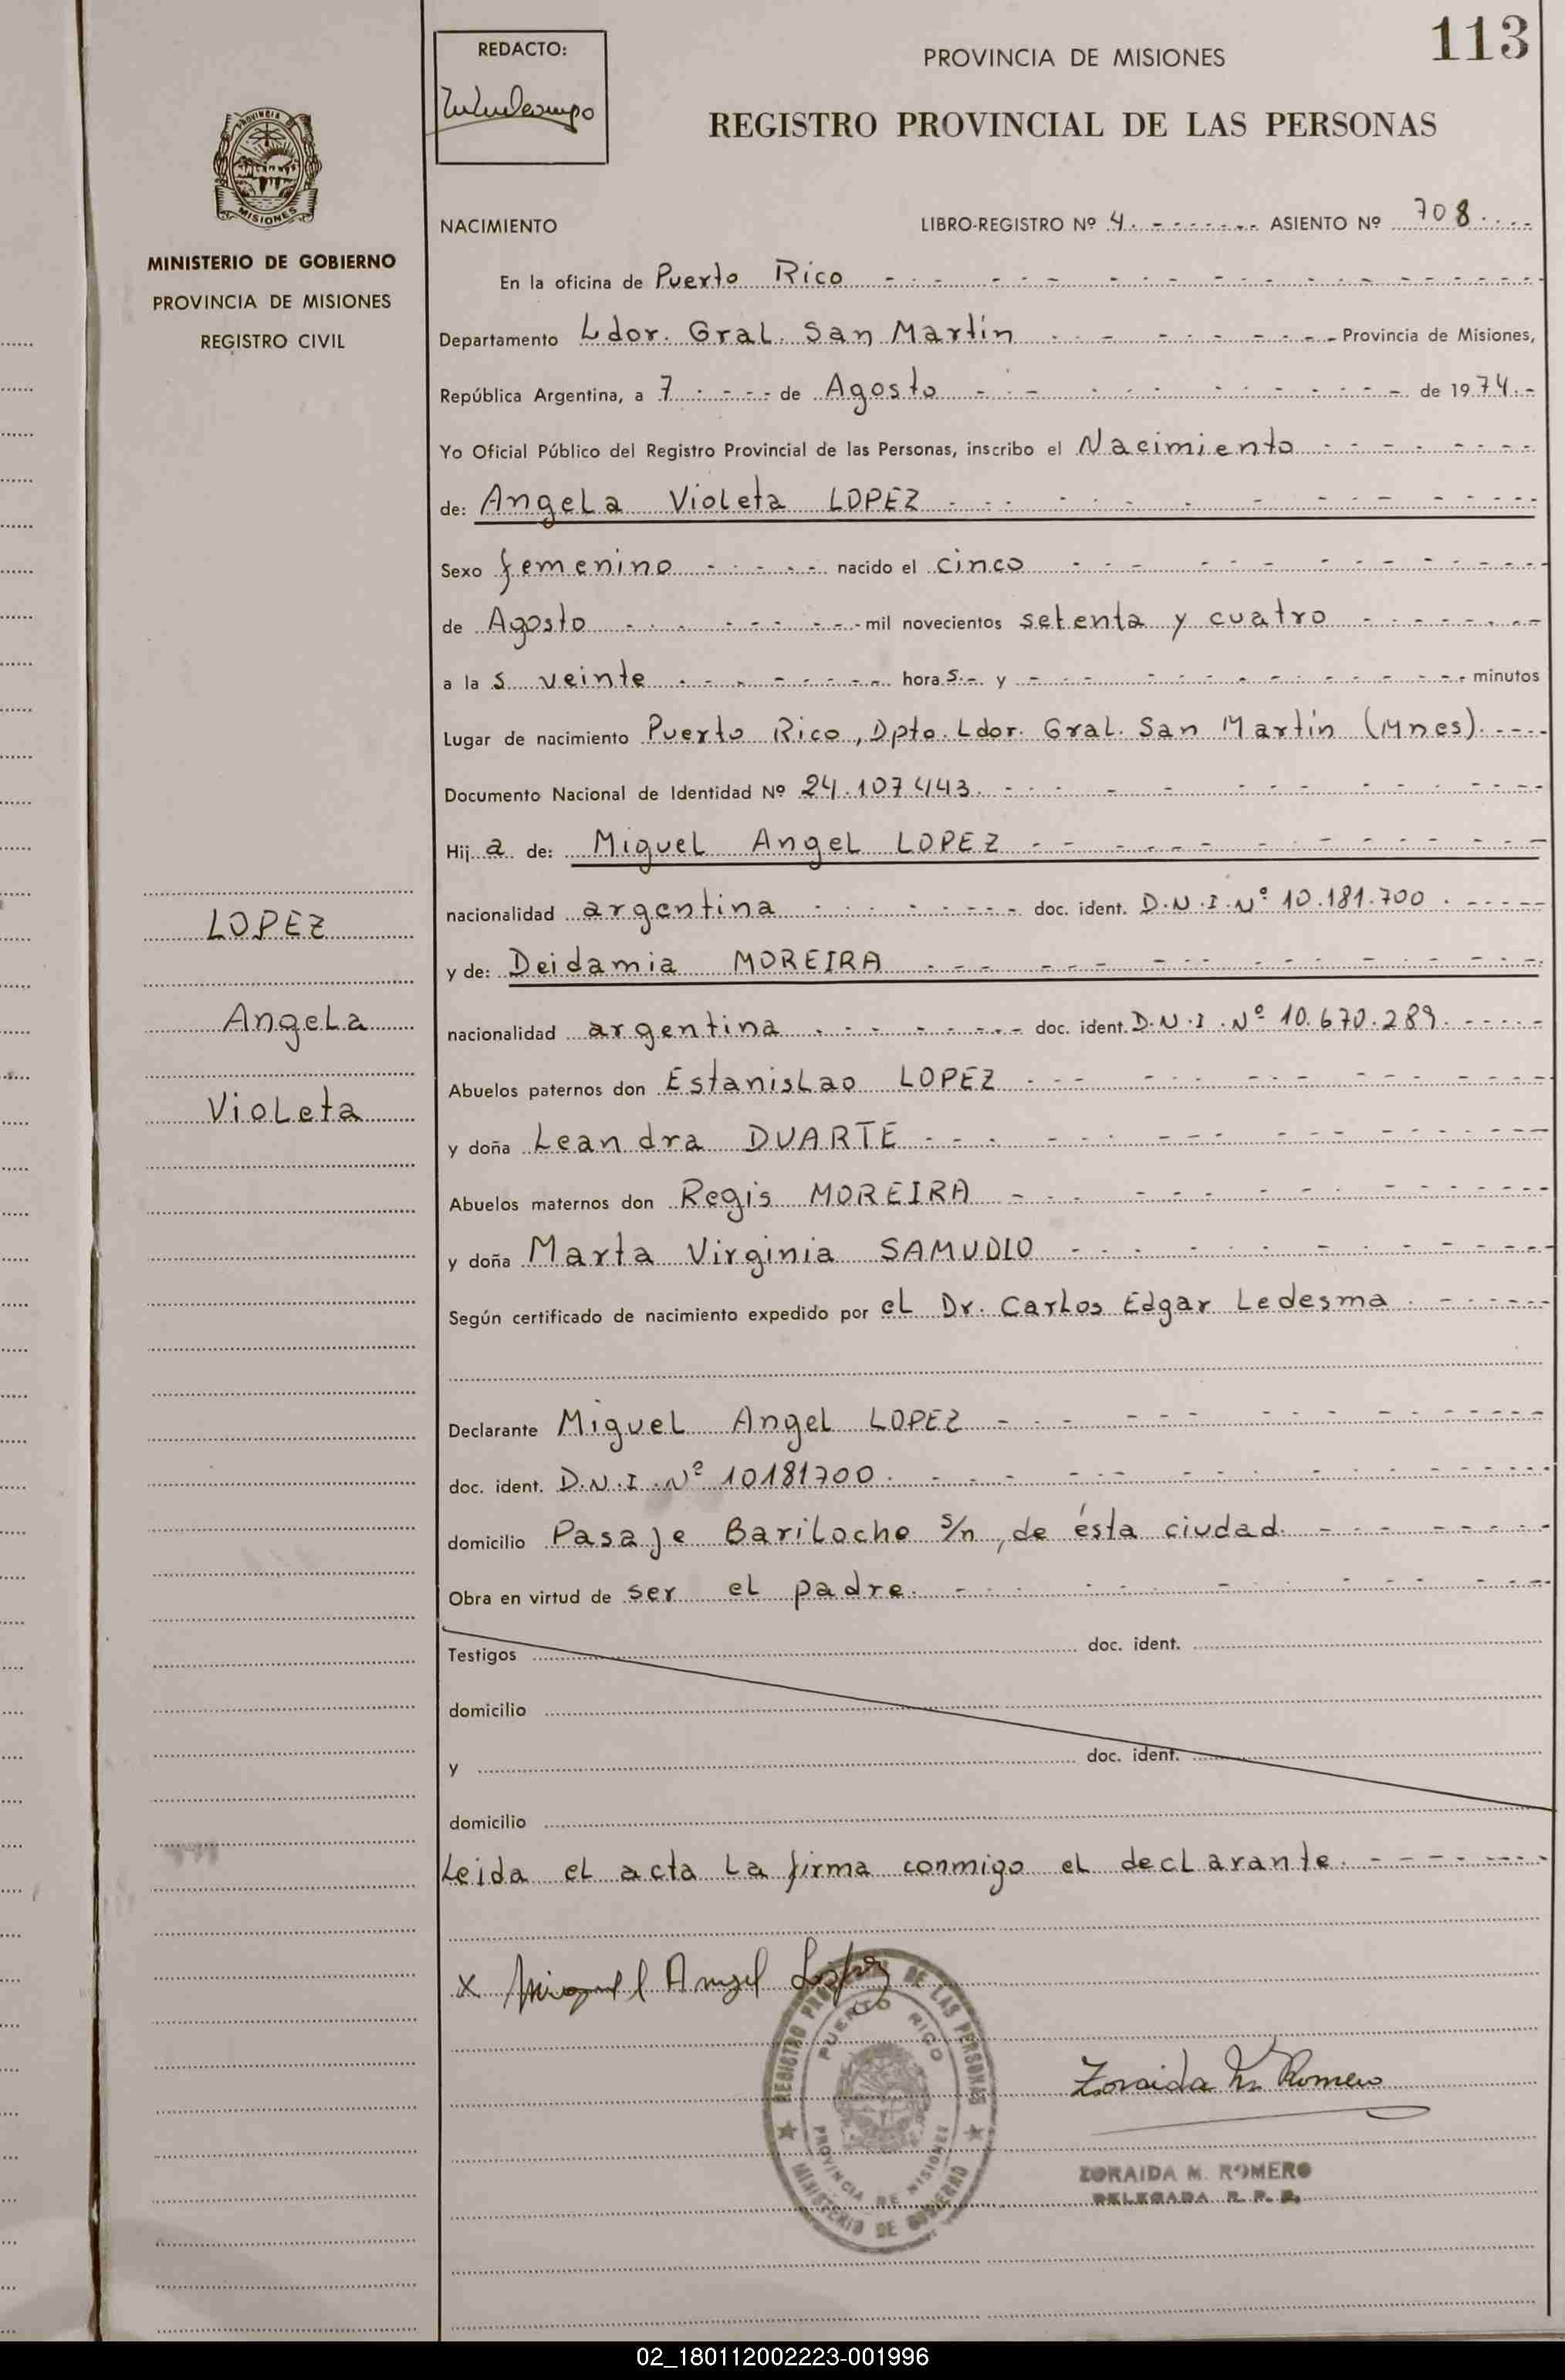 113
REDACTO:
PROVINCIA DE MISIONES
REGISTRO PROVINCIAL DE LAS PERSONAS
PROVINCIA DE
MISIONES
MINISTERIO DE GOBIERNO
PROVINCIA DE MISIONES
REGISTRO CIVIL
NACIMIENTO LIBRO-REGISTRO Nº 4. ASIENTO Nº 708
En la oficina de Puerto Rico
Departamento Ldor. Gral. San Martín Provincia de Misiones,
República Argentina, a 7 de Agosto de 1974.-
Yo Oficial Público del Registro Provincial de las Personas, inscribo el Nacimiento
de: Angela Violeta LOPEZ
Sexo femenino nacido el cinco
de Agosto mil novecientos setenta y cuatro
a las veinte horas.- y minutos
Lugar de nacimiento Puerto Rico, Dpto. Ldor. Gral. San Martín (Mnes).
Documento Nacional de Identidad Nº 24.107443.
Hija de: Miguel Angel LOPEZ
nacionalidad argentina doc. ident. D.N.I.Nº 10.181.700.
y de: Deidamia MOREIRA
nacionalidad argentina doc. ident. D.N.I.Nº 10.670.289.
Abuelos paternos don Estanislao LOPEZ
y doña Leandra DUARTE
Abuelos maternos don Regis MOREIRA
y doña Marta Virginia SAMUDIO
Según certificado de nacimiento expedido por el Dr. Carlos Edgar Ledesma
Declarante Miguel Angel LOPEZ
doc. ident. D.N.I.Nº 10181700.
domicilio Pasaje Bariloche s/n, de ésta ciudad.
Obra en virtud de ser el padre.
Testigos doc. ident.
domicilio
y doc. ident.
domicilio
Leida el acta la firma conmigo el declarante.
LOPEZ
Angela
Violeta
x Miguel Angel Lopez
REGISTRO PROV. DE LAS PERSONAS
PUERTO RICO
PROVINCIA DE MISIONES
MINISTERIO DE GOBIERNO
Zoraida M. Romero
ZORAIDA M. ROMERO
DELEGADA R. P. P.
02_180112002223-001996